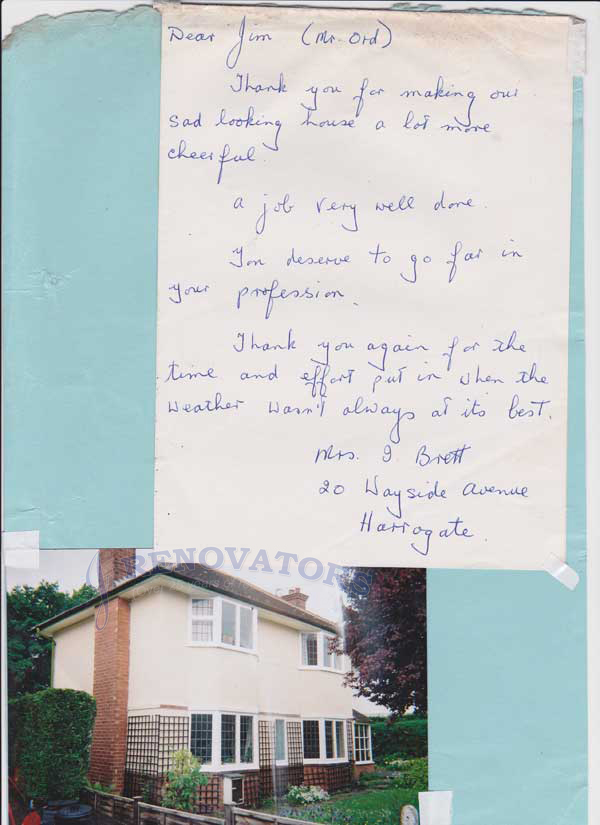 Dear Jim (Mr. Ord)
Thank you for making our
sad looking house a lot more
cheerful.
a job very well done.
You deserve to go far in
your profession.
Thank you again for the
time and effort put in when the
weather wasn't always at its best.
Mrs. I. Brett
20 Wayside Avenue
Harrogate.
RENOVATORS